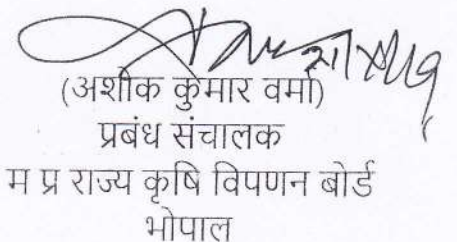 (अशोक कुमार वर्मा)
प्रबंध संचालक
म प्र राज्य कृषि विपणन बोर्ड
भोपाल